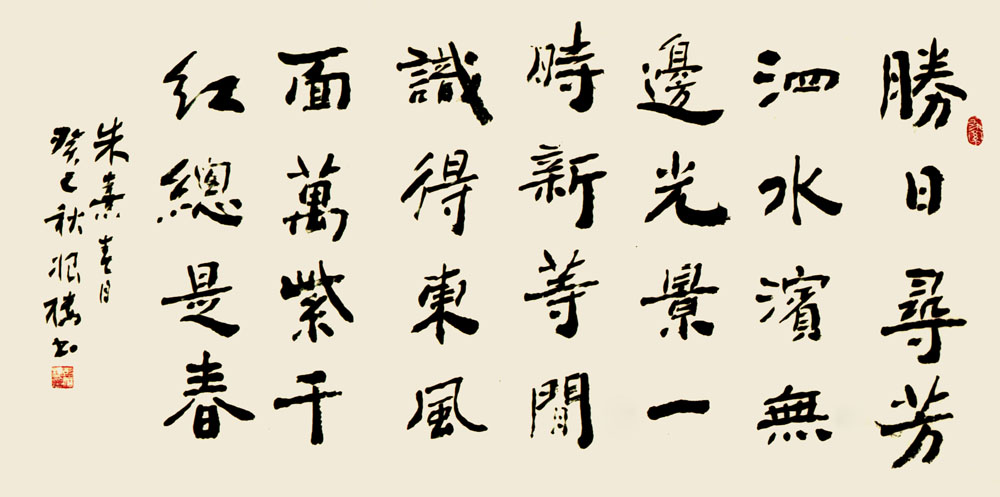 勝日尋芳
泗水濱無
邊光景一
時新等閒
識得東風
面萬紫千
紅總是春
朱熹春日
癸巳秋